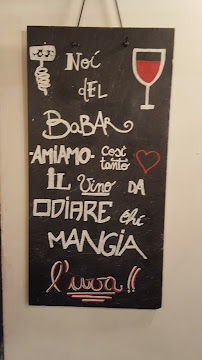 Noi
dEL
BaBAR
-AMIAMO- così tanto
iL Vino DA
ODIARE chi
MANGIA
l'uva!!